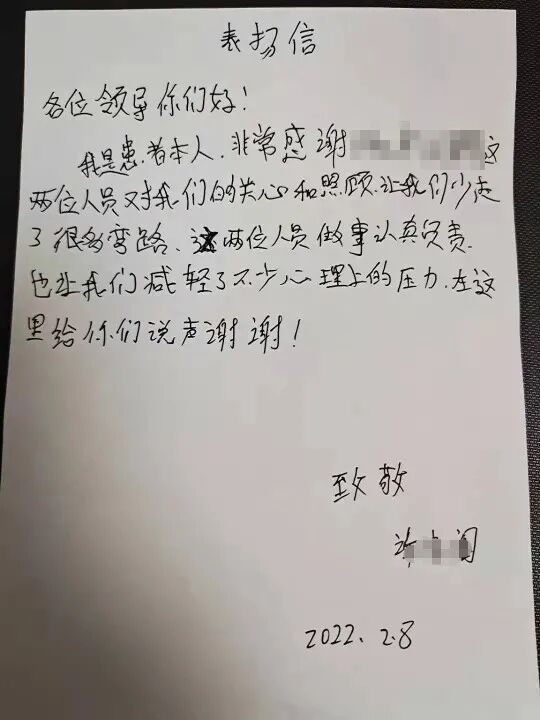 表扬信
各位领导你们好!
我是患者本人,非常感谢 这
两位人员对我们的关心和照顾.让我们少走
了很多弯路、这两位人员做事认真负责.
也让我们减轻了不少心理上的压力.在这
里给你们说声谢谢!
致敬
许
2022、2.8